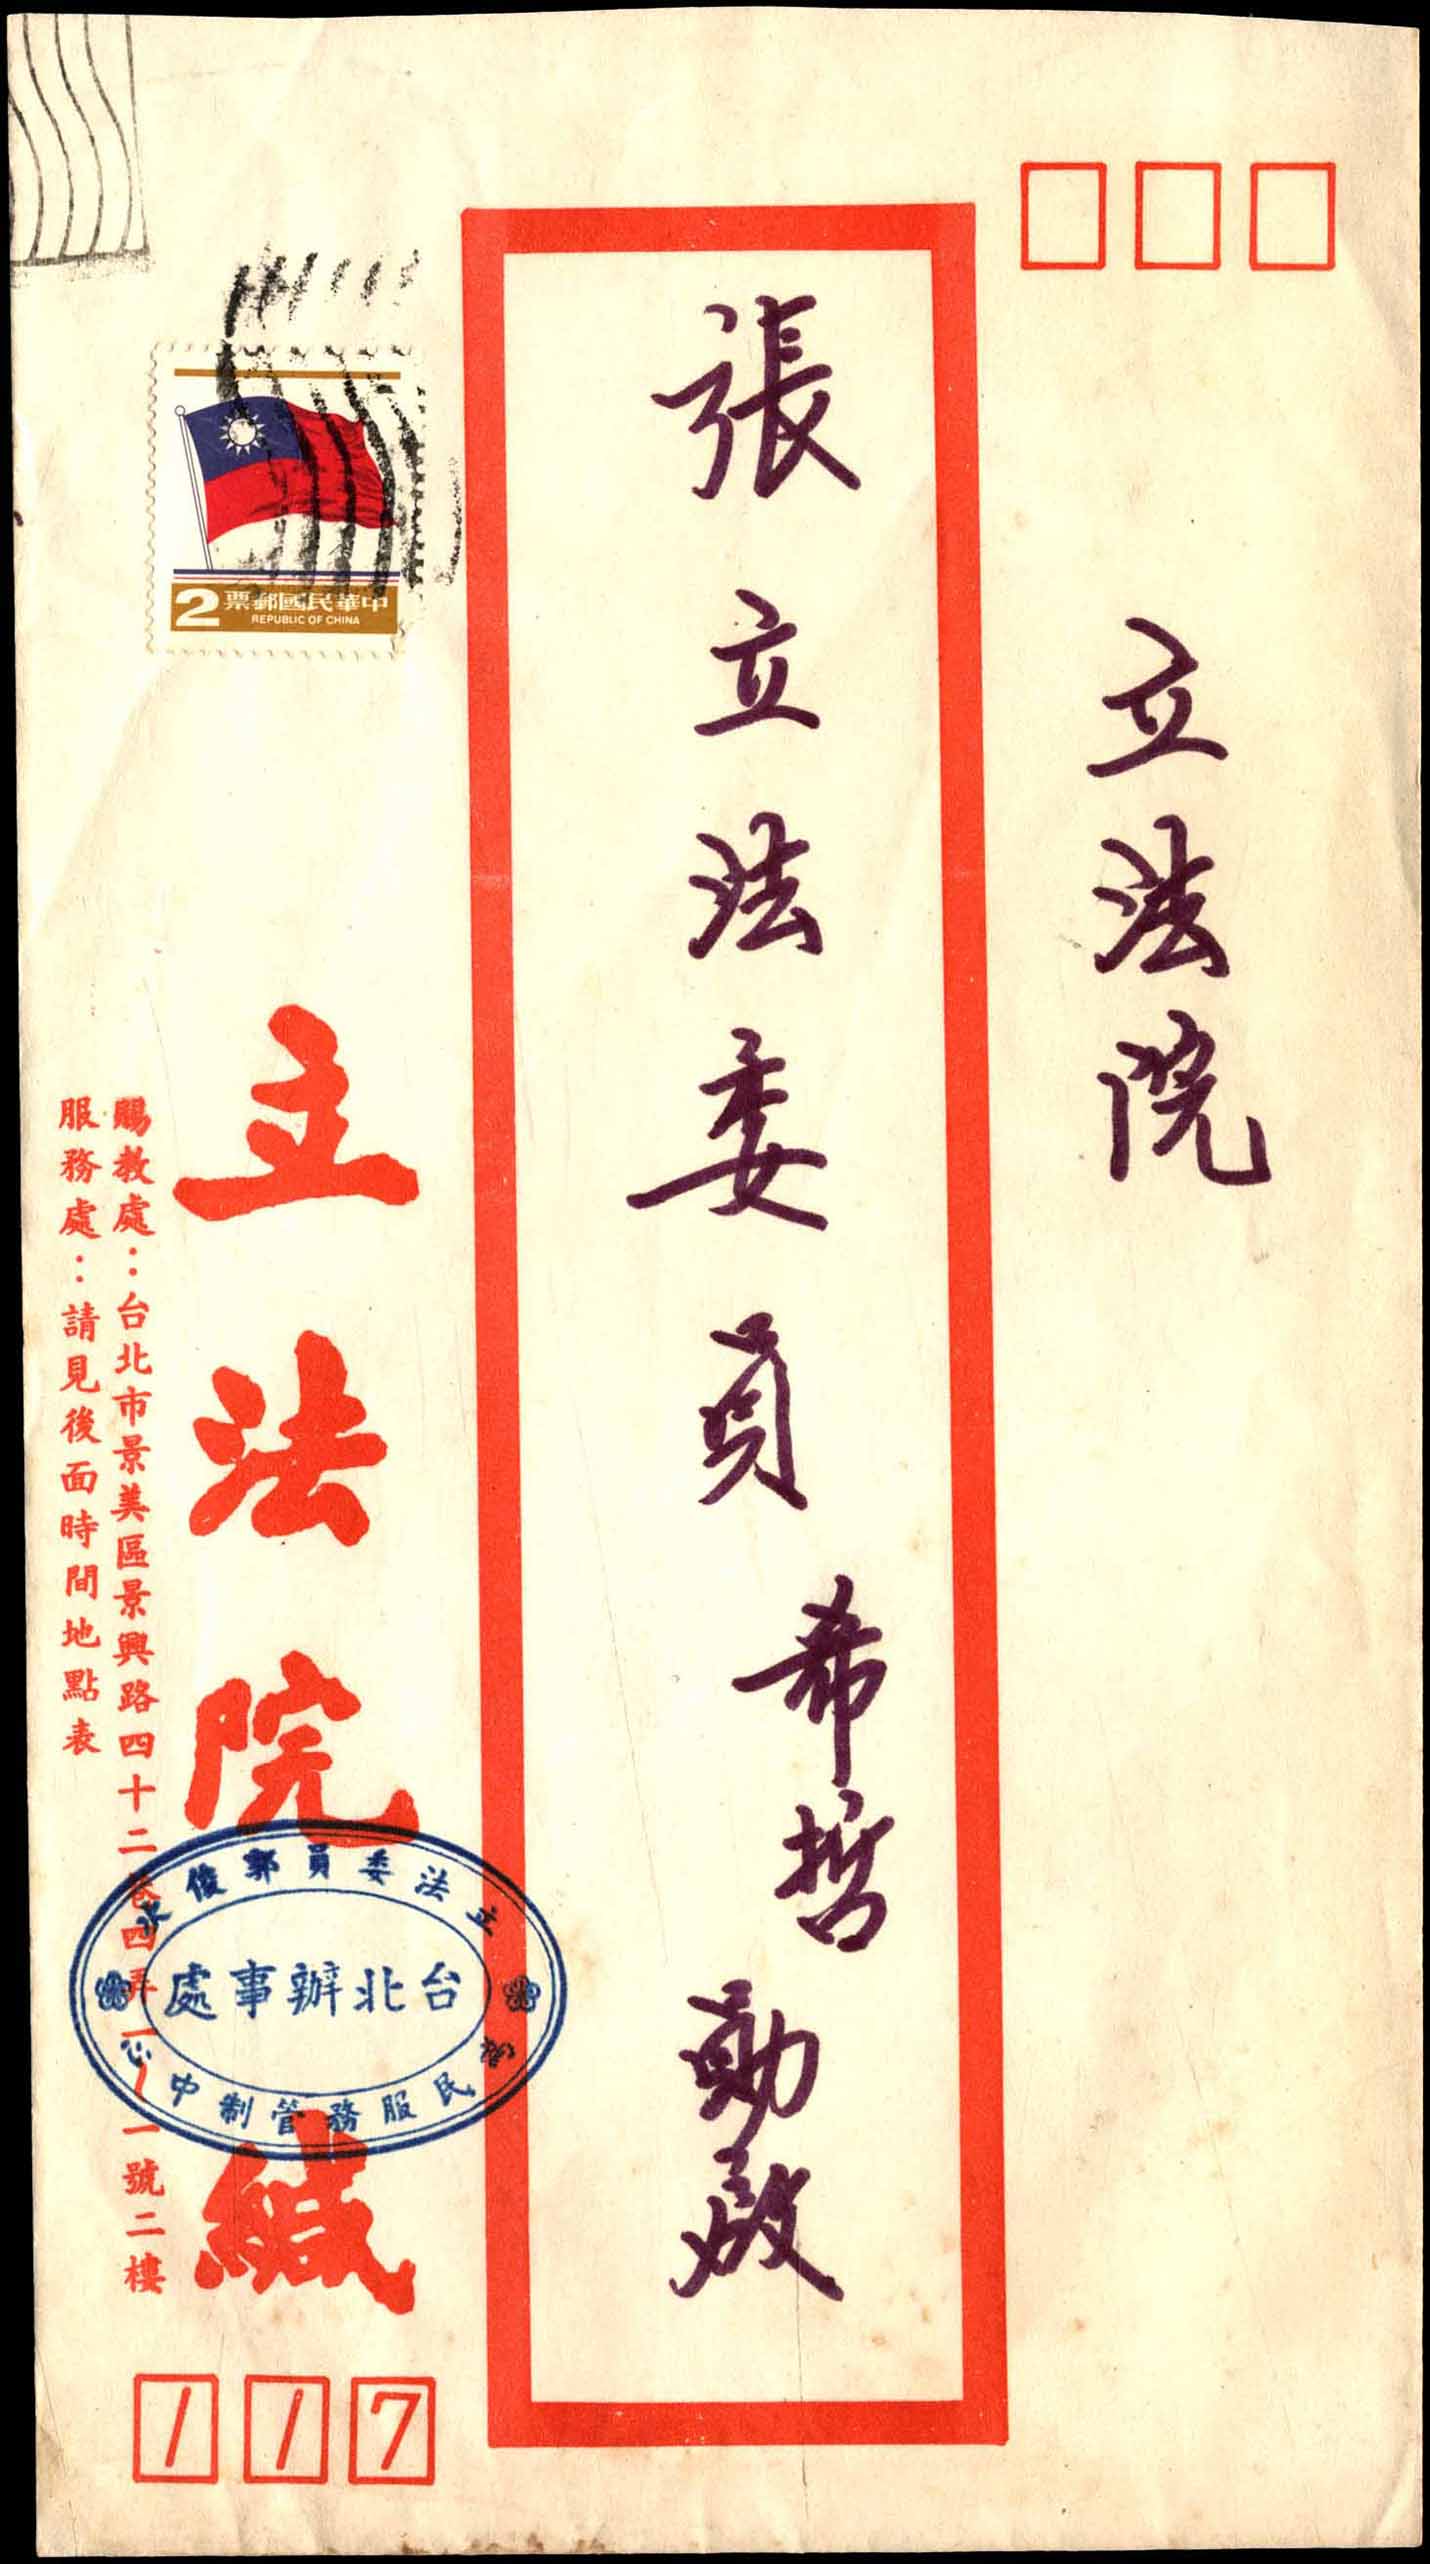 立法院
張立法委員 希哲 勛啟
2 中華民國郵票
REPUBLIC OF CHINA
立法院緘
賜教處：台北市景美區景興路四十二巷四弄一–一號二樓
服務處：請見後面時間地點表
立法委員郭俊次
台北辦事處
選民服務管制中心
117